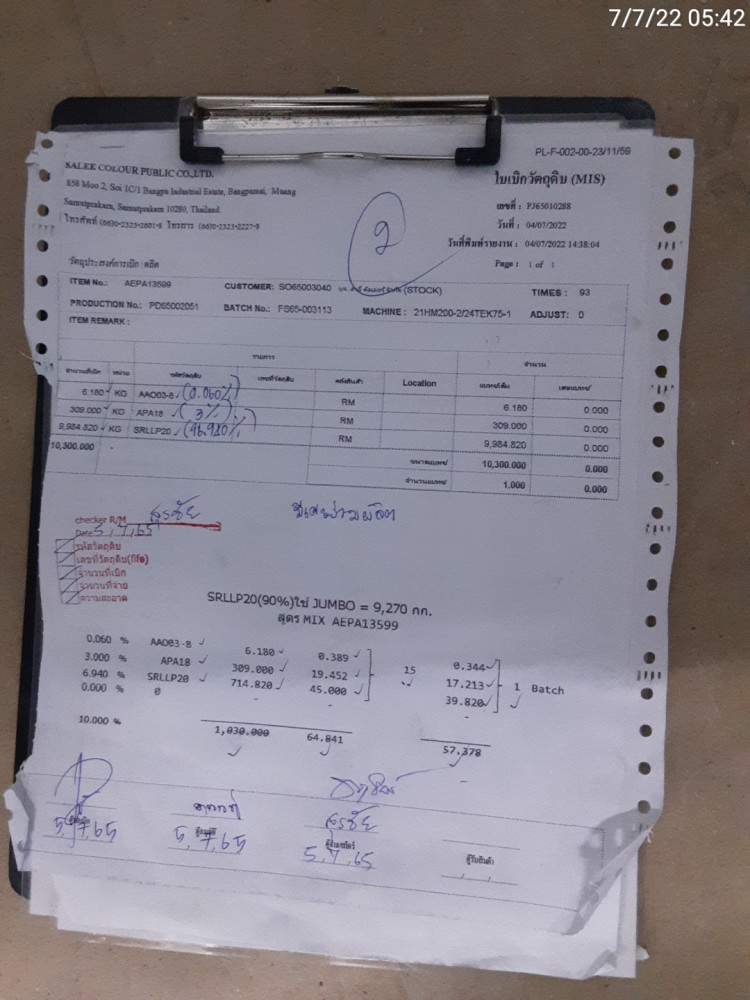 7/7/22 05:42
PL-F-002-00-23/11/59
SALEE COLOUR PUBLIC CO.,LTD.
ใบเบิกวัตถุดิบ (MIS)
858 Moo 2, Soi 1C/1 Bangpu Industrial Estate, Bangpumai, Muang
Samutprakarn, Samutprakarn 10280, Thailand.
โทรศัพท์ (66)0-2323-2601-8 โทรสาร (66)0-2323-2227-8
เลขที่ : PJ65010288
วันที่ : 04/07/2022
วันที่พิมพ์รายงาน : 04/07/2022 14:38:04
Page : 1 of 1
2
วัตถุประสงค์การเบิก : ผลิต
ITEM No.: AEPA13599 CUSTOMER: SO65003040 (STOCK) TIMES : 93
PRODUCTION No.: PD65002051 BATCH No.: FS65-003113 MACHINE : 21HM200-2/24TEK75-1 ADJUST: 0
ITEM REMARK :
รายการ จำนวน
จำนวนที่เบิก หน่วย รหัสวัตถุดิบ เลขที่วัตถุดิบ คลังสินค้า Location แบทท์เต็ม เศษแบทท์
6.180 KG AAO03-8 (0.060%) RM 6.180 0.000
309.000 KG APA18 (3%) RM 309.000 0.000
9,984.820 KG SRLLP20 (96.940%) RM 9,984.820 0.000
10,300.000 ขนาดแบทท์ 10,300.000 0.000
จำนวนแบทท์ 1.000 0.000
checker R/M สุรชัย
Date 5/7/65
รหัสวัตถุดิบ
เลขที่วัตถุดิบ(fifo)
จำนวนที่เบิก
จำนวนที่จ่าย
ความสะอาด
SRLLP20(90%)ใช้ JUMBO = 9,270 กก.
สูตร MIX AEPA13599
0.060 % AAO03-8 6.180 0.389 0.344
3.000 % APA18 309.000 19.452 15 17.213 1 Batch
6.940 % SRLLP20 714.820 45.000 39.820
0.000 % 0 - - -
10.000 % 1,030.000 64.841 57.378
สุรชัย
5.7.65 5.7.65 5.7.65
ผู้รับสินค้า